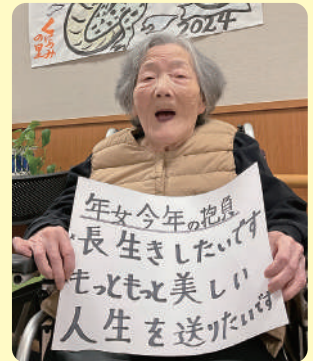 くるみの里
2024
年女今年の抱負
・長生きしたいです
・もっともっと美しい
人生を送りたいです